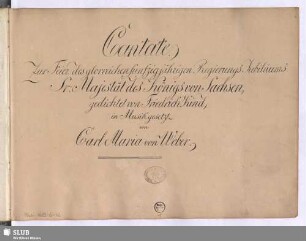 Cantate
Zur Feier des glorreichen fünfzigjährigen Regierungs Jubiläums
Sr: Majestät des Königs von Sachsen,
gedichtet von Friedrich Kind,
in Musik gesetzt
von
Carl Maria von Weber.
SLUB